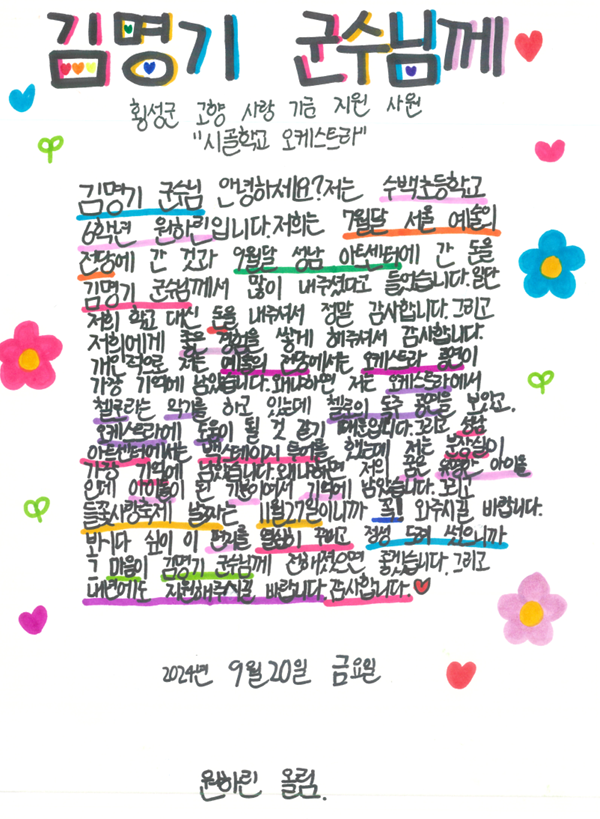 김명기 군수님께
횡성군 고향 사랑 기금 지원 사원
"시골학교 오케스트라"
김명기 군수님 안녕하세요? 저는 수백초등학교
6학년 원하린입니다. 저희는 7월달 서울 예술의
전당에 간 것과 9월달 성남 아트센터에 간 돈을
김명기 군수님께서 많이 내주셨다고 들었습니다. 일단
저희 학교 대신 돈을 내주셔서 정말 감사합니다. 그리고
저희에게 좋은 경험을 쌓게 해주셔서 감사합니다.
개인적으로 저는 예술의 전당에서는 오케스트라 공연이
가장 기억에 남았습니다. 왜냐하면 저는 오케스트라에서
첼로라는 악기를 하고 있는데 첼로의 독주 공연을 보았고,
오케스트라에 도움이 될 것 같기 때문입니다. 그리고 성남
아트센터에서는 백스테이지 투어를 했는데 저는 분장실이
가장 기억에 남았습니다. 왜냐하면 저의 꿈은 유명한 아이돌
인데 아이돌이 간 곳이어서 기억에 남았습니다. 그리고
들꽃사랑축제 날짜는 11월27일이니까 꼭! 와주시길 바랍니다.
바쁘시다 싶이 이 편지를 열심히 꾸미고 정성 들여 썼으니까
그 마음이 김명기 군수님께 전해졌으면 좋겠습니다. 그리고
내년에도 지원해주시길 바랍니다. 감사합니다.
2024년 9월20일 금요일
원하린 올림.